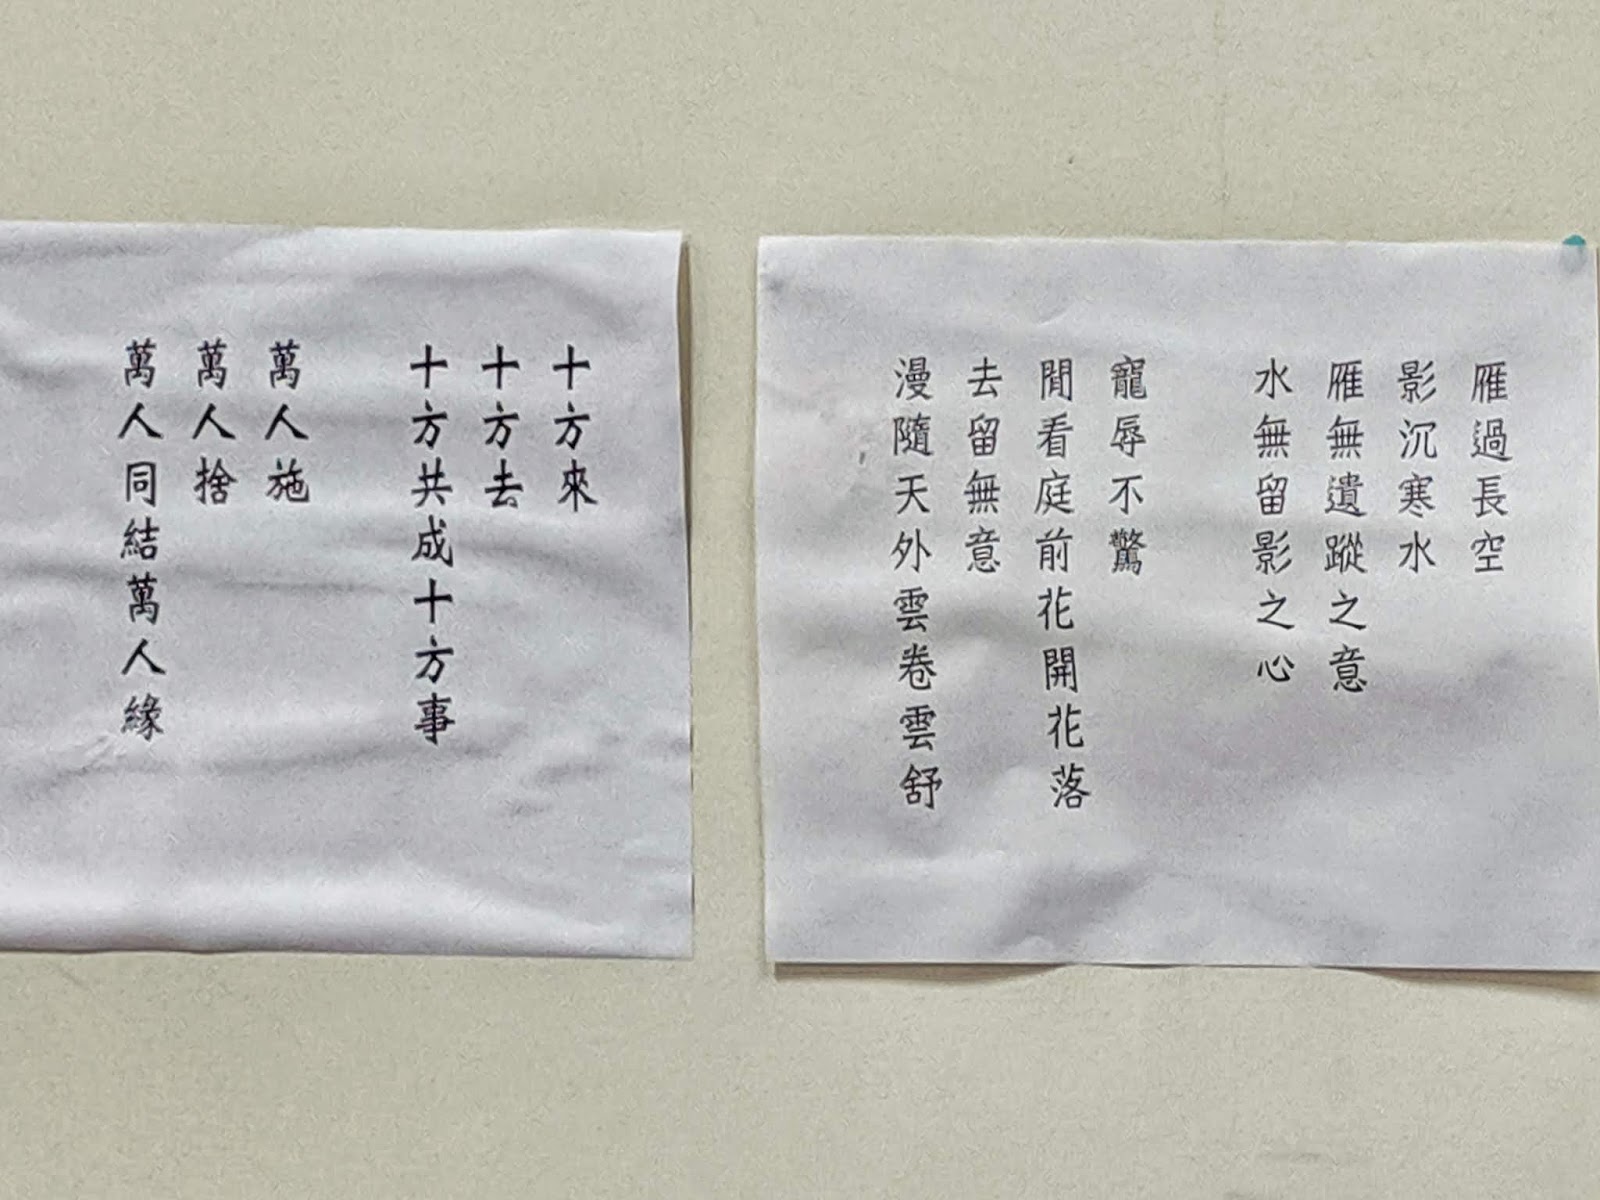 雁過長空
影沉寒水
雁無遺蹤之意
水無留影之心
寵辱不驚
閒看庭前花開花落
去留無意
漫隨天外雲卷雲舒
十方來
十方去
十方共成十方事
萬人施
萬人捨
萬人同結萬人緣